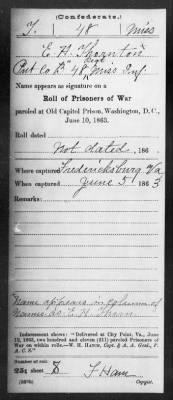 (Confederate.)
T. | 48 | Miss
E. H. Thornton
Regt
Pvt Co D 48 Miss Inf.
Name appears as signature on a
Roll of Prisoners of War
paroled at Old Capitol Prison, Washington, D. C.,
June 10, 1863.
Roll dated
Not dated, 186 .
Where captured Fredericksburg Va
When captured June 5, 1863
Remarks:
Name appears in column of
Names as E. H. Thorn
Indorsement shows: "Delivered at City Point, Va., June
12, 1863, two hundred and eleven (211) paroled Prisoners of
War on within rolls.—W. H. HATCH, Capt. & A. A. Genl., P.
A. C. S."
Number of roll:
251 sheet 5
Copyist.